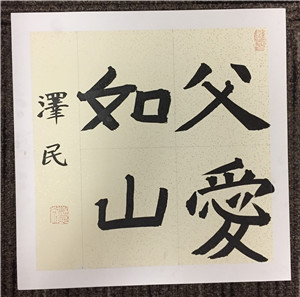 父愛
如山
澤民